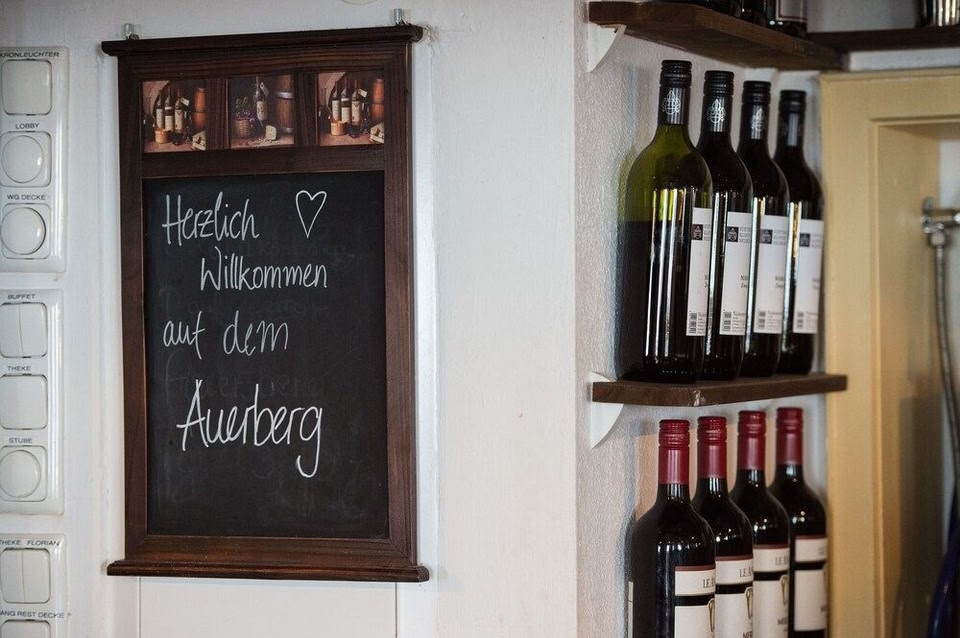 KRONLEUCHTER
LOBBY
WG DECKE
BUFFET
THEKE
STUBE
THEKE FLORIAN
Herzlich ♡
Willkommen
auf dem
Auerberg